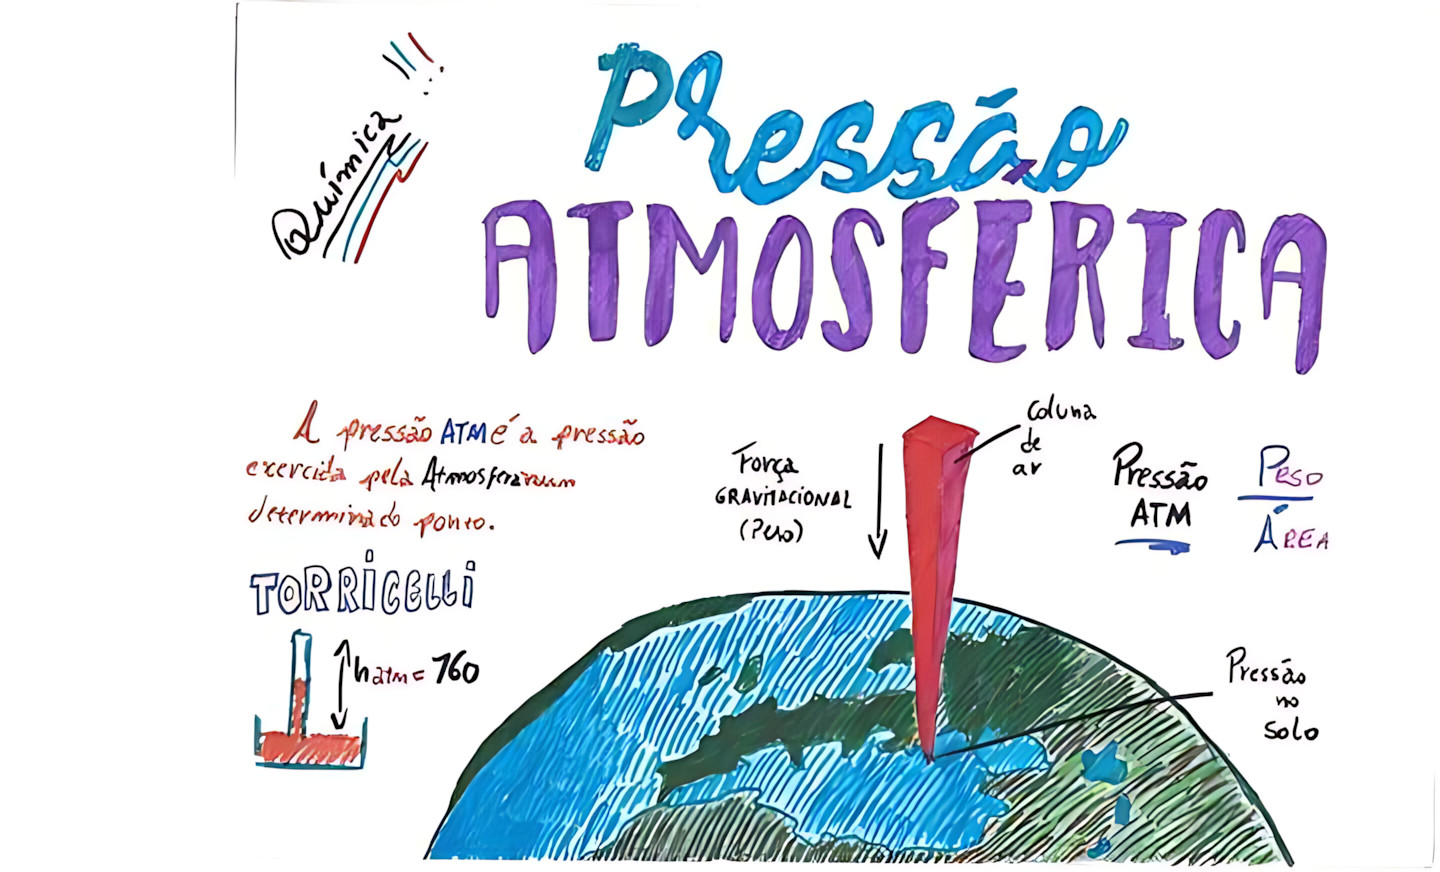 Química !!!
Pressão
ATMOSFÉRICA
A pressão ATM é a pressão
exercida pela Atmosfera num
determinado ponto.
TORRICELLI
hatm = 760
Força
GRAVITACIONAL
(Peso)
Coluna
de
ar
Pressão
ATM
Peso
ÁREA
Pressão
no
solo